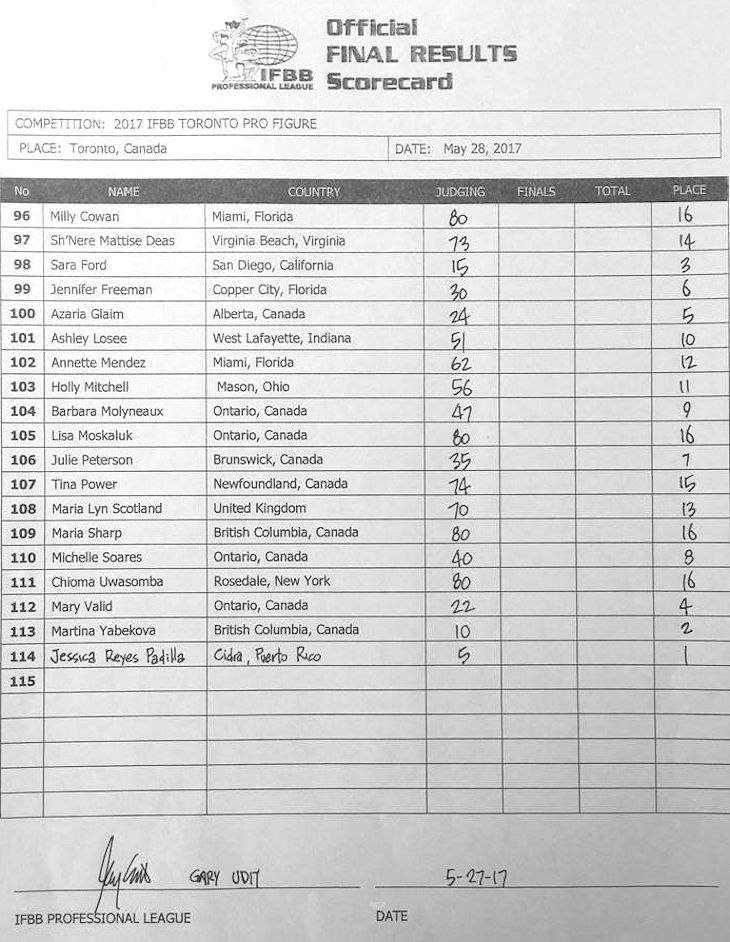 Official
FINAL RESULTS
Scorecard
IFBB
PROFESSIONAL LEAGUE
COMPETITION: 2017 IFBB TORONTO PRO FIGURE
PLACE: Toronto, Canada DATE: May 28, 2017
No NAME COUNTRY JUDGING FINALS TOTAL PLACE
96 Milly Cowan Miami, Florida 80 16
97 Sh'Nere Mattise Deas Virginia Beach, Virginia 73 14
98 Sara Ford San Diego, California 15 3
99 Jennifer Freeman Copper City, Florida 30 6
100 Azaria Glaim Alberta, Canada 24 5
101 Ashley Losee West Lafayette, Indiana 51 10
102 Annette Mendez Miami, Florida 62 12
103 Holly Mitchell Mason, Ohio 56 11
104 Barbara Molyneaux Ontario, Canada 47 9
105 Lisa Moskaluk Ontario, Canada 80 16
106 Julie Peterson Brunswick, Canada 35 7
107 Tina Power Newfoundland, Canada 74 15
108 Maria Lyn Scotland United Kingdom 70 13
109 Maria Sharp British Columbia, Canada 80 16
110 Michelle Soares Ontario, Canada 40 8
111 Chioma Uwasomba Rosedale, New York 80 16
112 Mary Valid Ontario, Canada 22 4
113 Martina Yabekova British Columbia, Canada 10 2
114 Jessica Reyes Padilla Cidra, Puerto Rico 5 1
115
GARY UDIT 5-27-17
IFBB PROFESSIONAL LEAGUE DATE